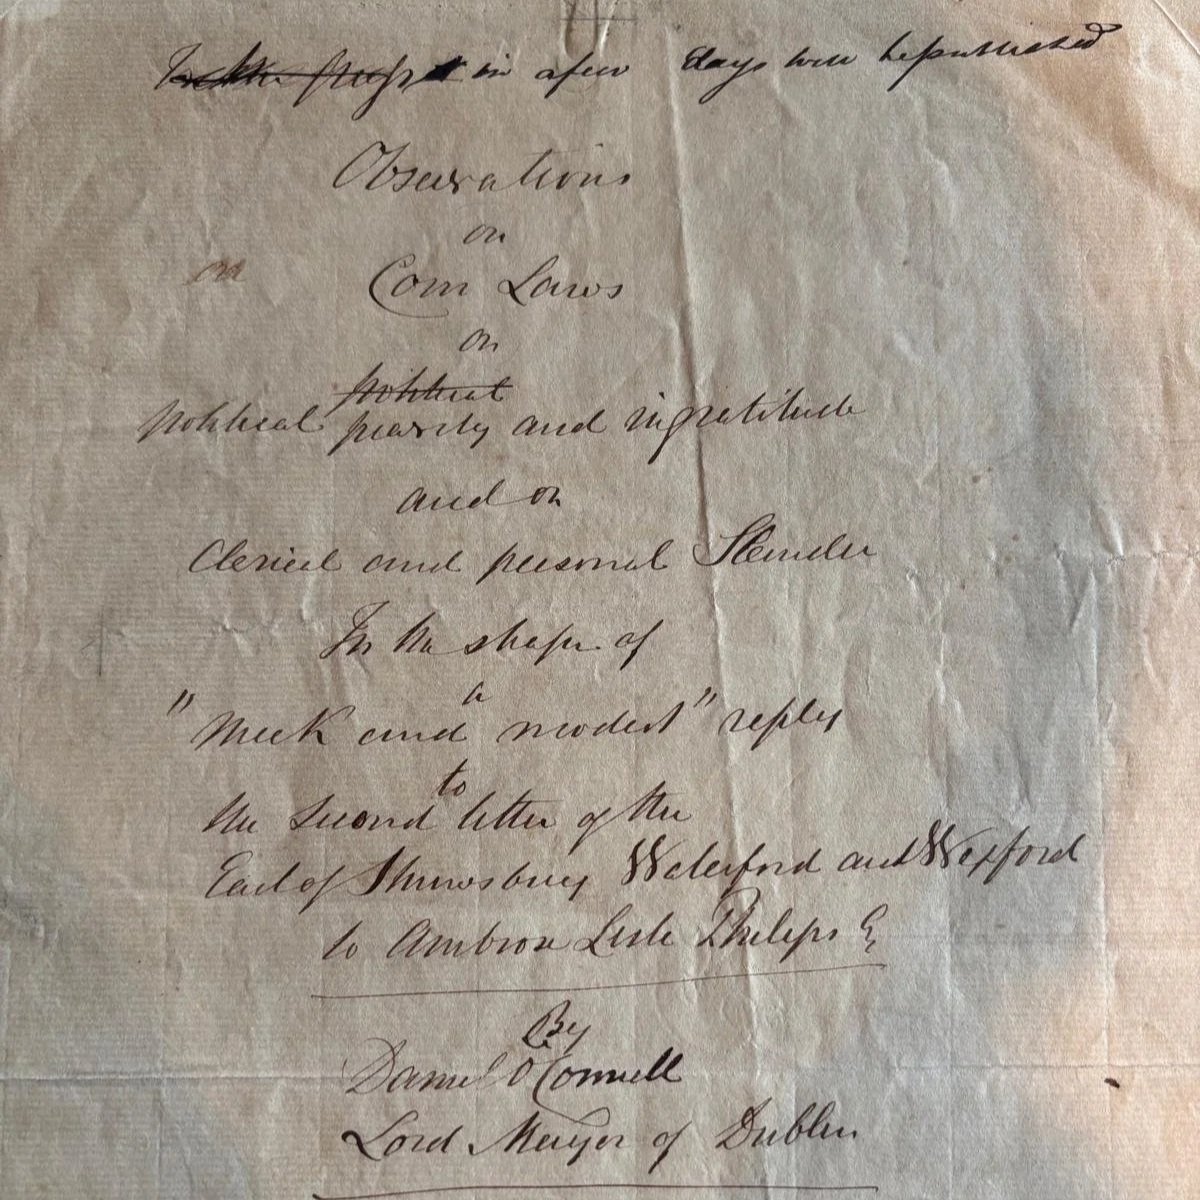 In the press in a few days will be published
Observations
on
on Corn Laws
on
political
political pravity and ingratitude
and on
Clerical and personal Slander
In the shape of
a
"Meek and modest" reply
to
the second letter of the
Earl of Shrewsbury Waterford and Wexford
to Ambrose Lisle Phelips Es
By
Daniel O Connell
Lord Mayor of Dublin